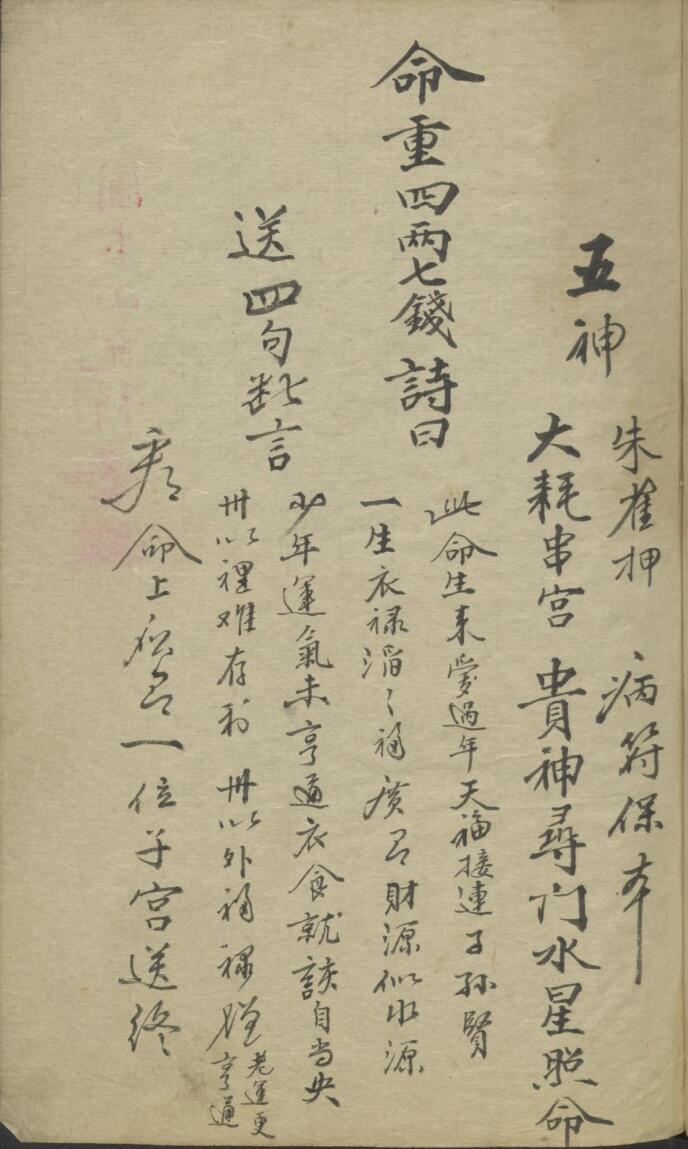 五神
朱雀押 病符保本
大耗串宫 貴神尋门水星照命
命重四两七錢詩曰
此命生来愛過年天福接連子孫賢
一生衣禄滔々福広召財源似水源
少年運氣未亨通衣食就該自当央
送四句断言
卅以裡难存利 卅以外福禄 老運更亨通
命上 一位子宫送終